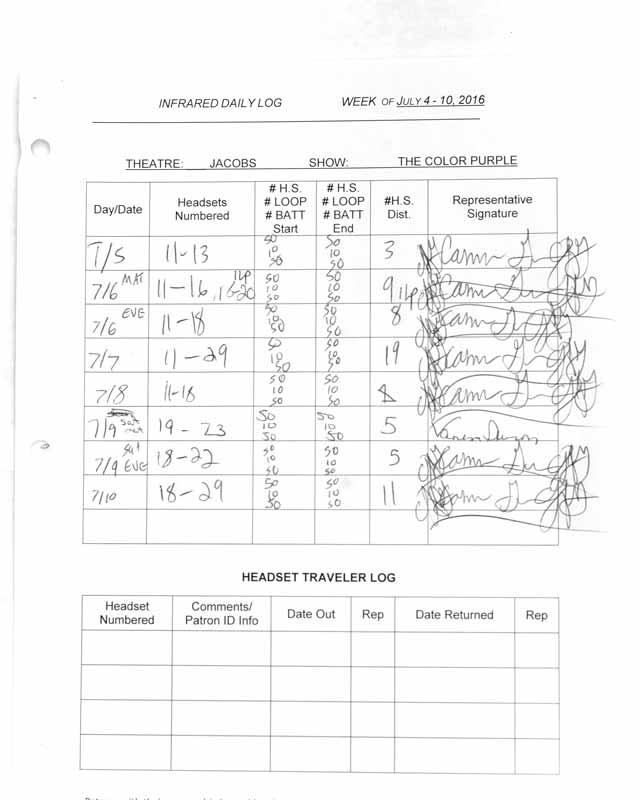 INFRARED DAILY LOG WEEK OF JULY 4 - 10, 2016
THEATRE: JACOBS SHOW: THE COLOR PURPLE
Day/Date Headsets Numbered # H.S. # LOOP # BATT Start # H.S. # LOOP # BATT End #H.S. Dist. Representative Signature
7/5 11-13 50 10 50 50 10 50 3
7/6 MAT 11-16, 50 10 50 50 10 50 9
7/6 EVE 11-18 50 10 50 50 10 50 8
7/7 11-29 50 10 50 50 10 50 19
7/8 11-18 50 10 50 50 10 50 8
7/9 sat mat 19-23 50 10 50 50 10 50 5
7/9 sat EVE 18-22 50 10 50 50 10 50 5
7/10 18-29 50 10 50 50 10 50 11
HEADSET TRAVELER LOG
Headset Numbered Comments/ Patron ID Info Date Out Rep Date Returned Rep